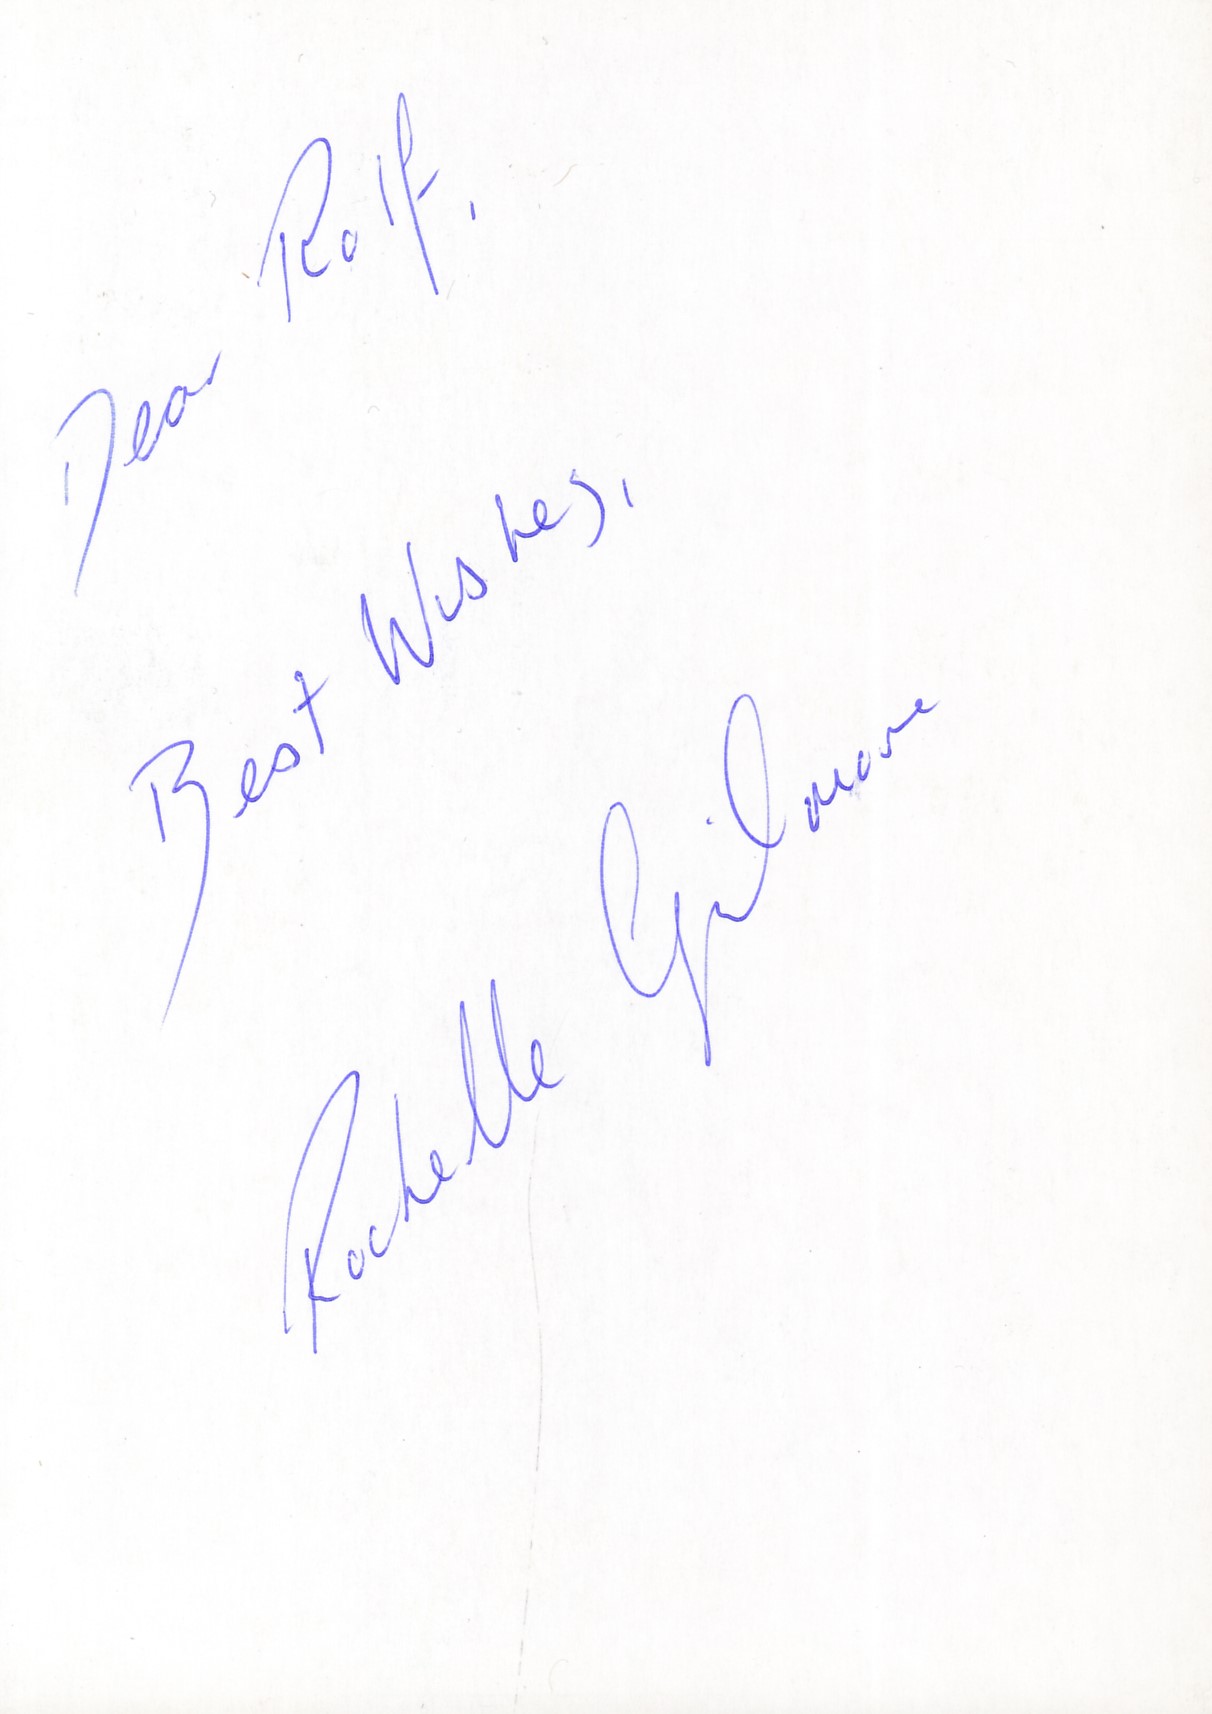 Dear Rolf,
Best Wishes,
Rochelle Gilmore